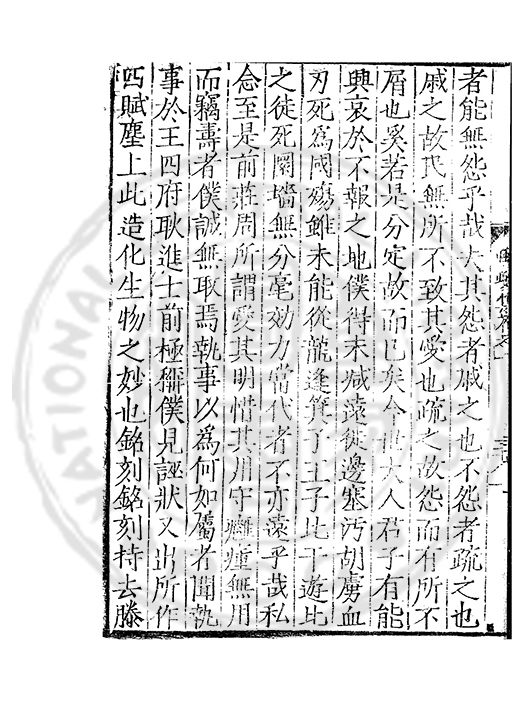 者能無怨乎哉夫其怨者戚之也不怨者疏之也
戚之故民無所不致其愛也疏之故怨而有所不
屑也奚若是分定故而已矣今世大人君子有能
興哀於不報之地僕得末減遠徙邊塞污胡虜血
刃死為國殤雖未能從龍逢箕子王子比干遊比
之徒死圜墻無分毫効力當代者不亦遠乎哉私
念至是前莊周所謂愛其明惜其用守癰瘇無用
而竊壽者僕誠無取焉執事以為何如屬者聞執
事於王四府耿進士前極稱僕見誣狀又出所作
四賦塵上此造化生物之妙也銘刻銘刻持去滕
NATIONAL